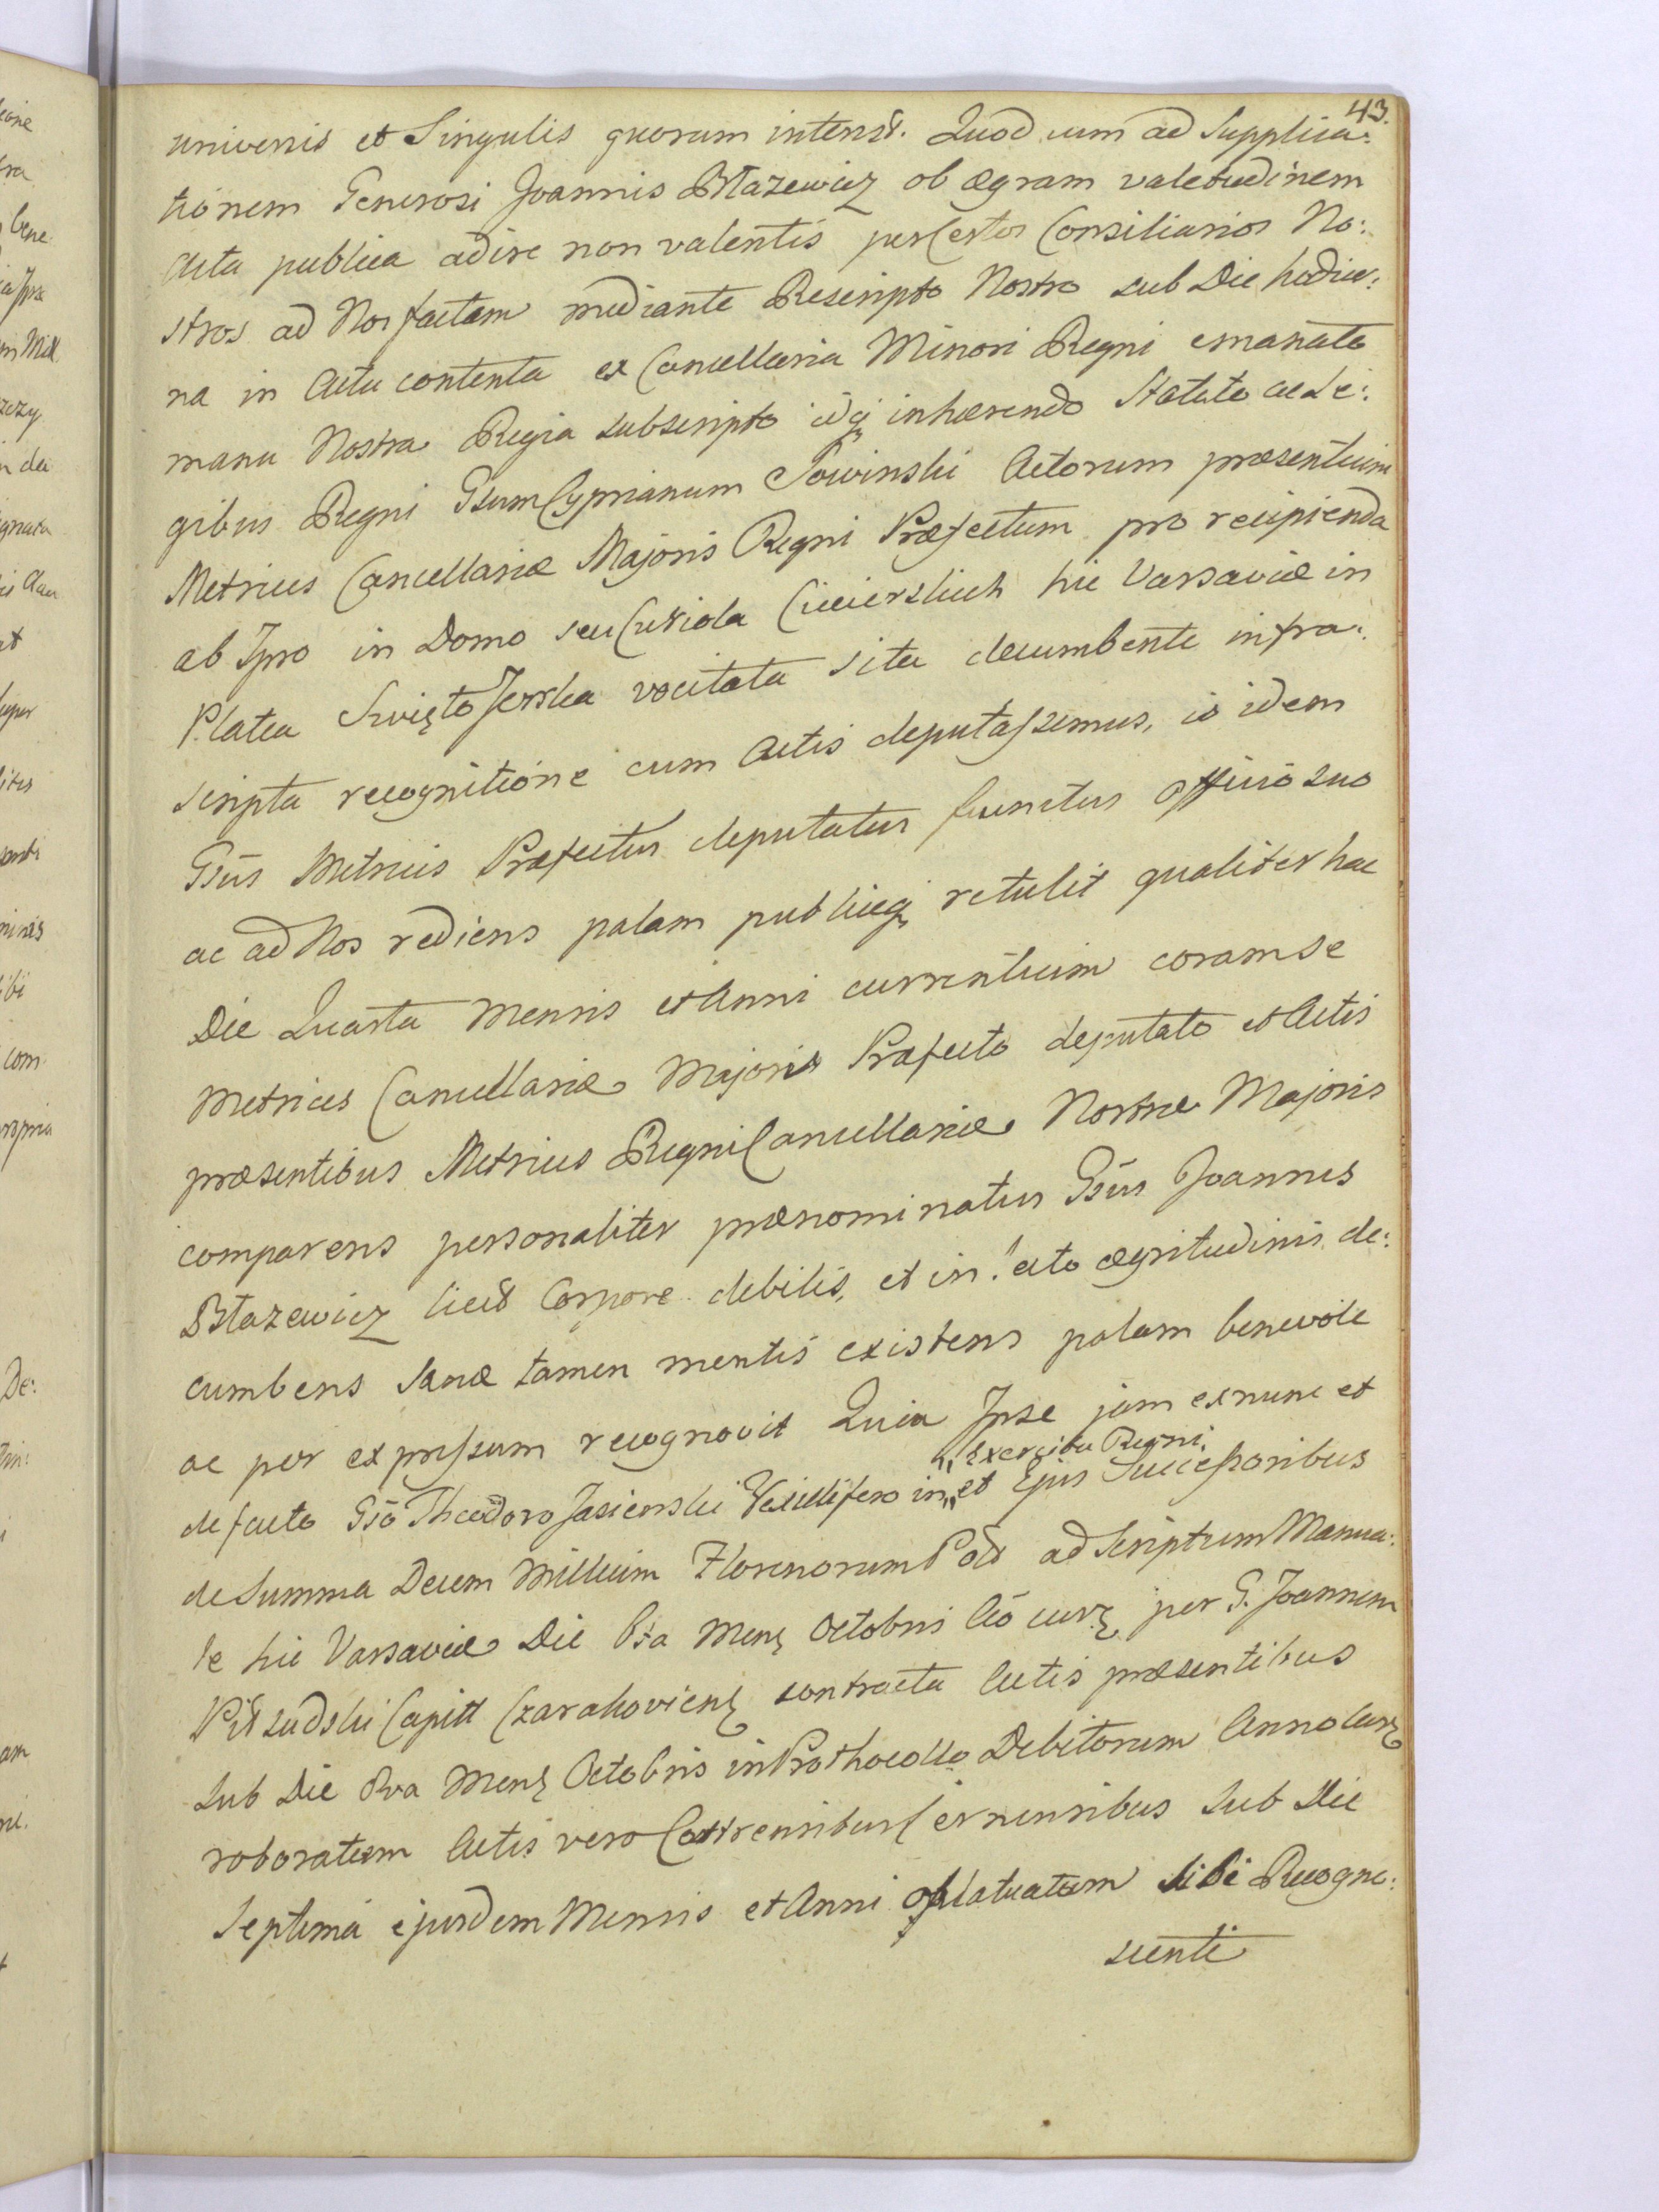 43.
universis et Singulis quorum interest. Quod cum ad Supplica:
tionem Generosi Joannis Błazewicz ob ægram valetudinem
Acta publica adire non valentis per certos Consiliarios No:
stros ad Nos factam mediante Rescripto Nostro sub Die hodier:
na in Actu contenta ex Cancellaria Minori Regni emanato
manu Nostra Regia subscripto idq, inhærendo Statuto ac Le:
gibus Regni Gsum Cyprianum Sowinski Actorum præsentium
Metrices Cancellariæ Majoris Regni Præfectum pro recipienda
ab Ipso in Domo seu Curiola Ciecierskich hic Varsaviæ in
Platea Święto Jerska vocitata sita decumbente infra:
scripta recognitione cum Actis deputassemus, is idem
Gsus Metrices Præfectus deputatus functus officio suo
ac ad Nos rediens palam publiceq, retulit qualiter hac
Die Quarta Mensis et Anni currentium coram se
Metrices Cancellariæ Majoris Præfecto deputato et Actis
præsentibus Metrices Regni Cancellariæ Nostræ Majoris
comparens personaliter prænominatus Gsus Joannes
Błazewicz licet Corpore debilis, et in lecto ægritudinis de:
cumbens sanæ tamen mentis existens palam benevole
ac per expressum recognovit Quia Ipse jam ex nunc et
Exercitu Regni.
de facto Gso Theodoro Jasienski Vexillifero in,, et Ejus Successoribus
de Summa Decem Millium Florenorum Pol ad Scriptum Manua:
le hic Varsaviæ Die Mens Octobris Ao curr per G. Joannem
Piłsudski Capitt Czarakoviens contracta Actis præsentibus
sub Die Mens Octobris in Prothocollo Debitorum Anno Curr
roboratum Actis vero Castrensibus Cernensibus sub Die
Septima ejusdem Mensis et Anni oblatuatum sibi Recogno:
scenti